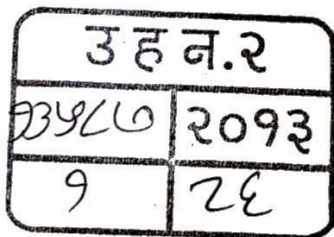 उ ह न.२
१३५८७ २०१३
१ २६